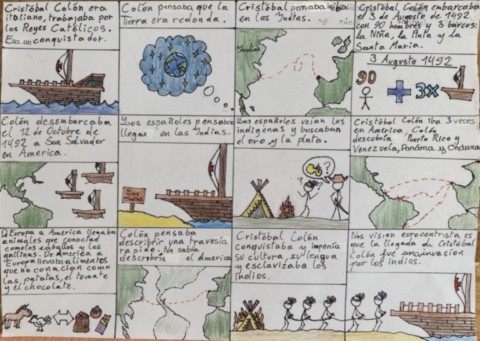 Cristóbal Colón era
italiano, trabajaba por
los Reyes Católicos.
Era un conquistador.
Colón pensaba que la
Tierra era redonda.
Cristóbal pensaba
en las Indias.
Cristóbal Colón embarcaba
el 3 de Agosto de 1492
con 90 hombres y 3 barcos:
la Niña, la Pinta y la
Santa Maria.
3 Agosto 1492
90
3x
Colón desembarcaba
el 12 de Octubre de
1492 a San Salvador
en America.
Los españoles pensaban
llegar en las Indias.
Los españoles veían los
indígenas y buscaban
el oro y la plata.
Cristóbal Colón iba 3 veces
en America. Colón
descubría Puerto Rico y
Venezuela, Panáma y
De Europa a America llegaba
animales que conocían
como los caballos y los
gallinas. De América a
Europa alimentos que
no conocían como
las patatas, el tomate
y el chocolate.
Colón pensaba
describrir una travesía
rapide. No sabía
descubría el America
Cristóbal Colón
conquistaba y imponía
su cultura, su lengua
y esclavizaba los
indios.
Nos vision eurocentrista es
que la llegada de Cristóbal
Colón fue una invasion
por los indios.